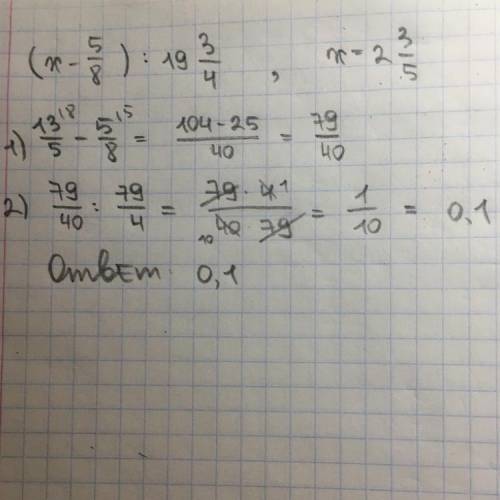 (x - 5/8) : 19 3/4 , x = 2 3/5
1) 13/5 ⁽⁸ - 5/8 ⁽⁵ = (104 - 25)/40 = 79/40
2) 79/40 : 79/4 = (79 · 4 1)/(10 40 · 79) = 1/10 = 0,1
Ответ 0,1